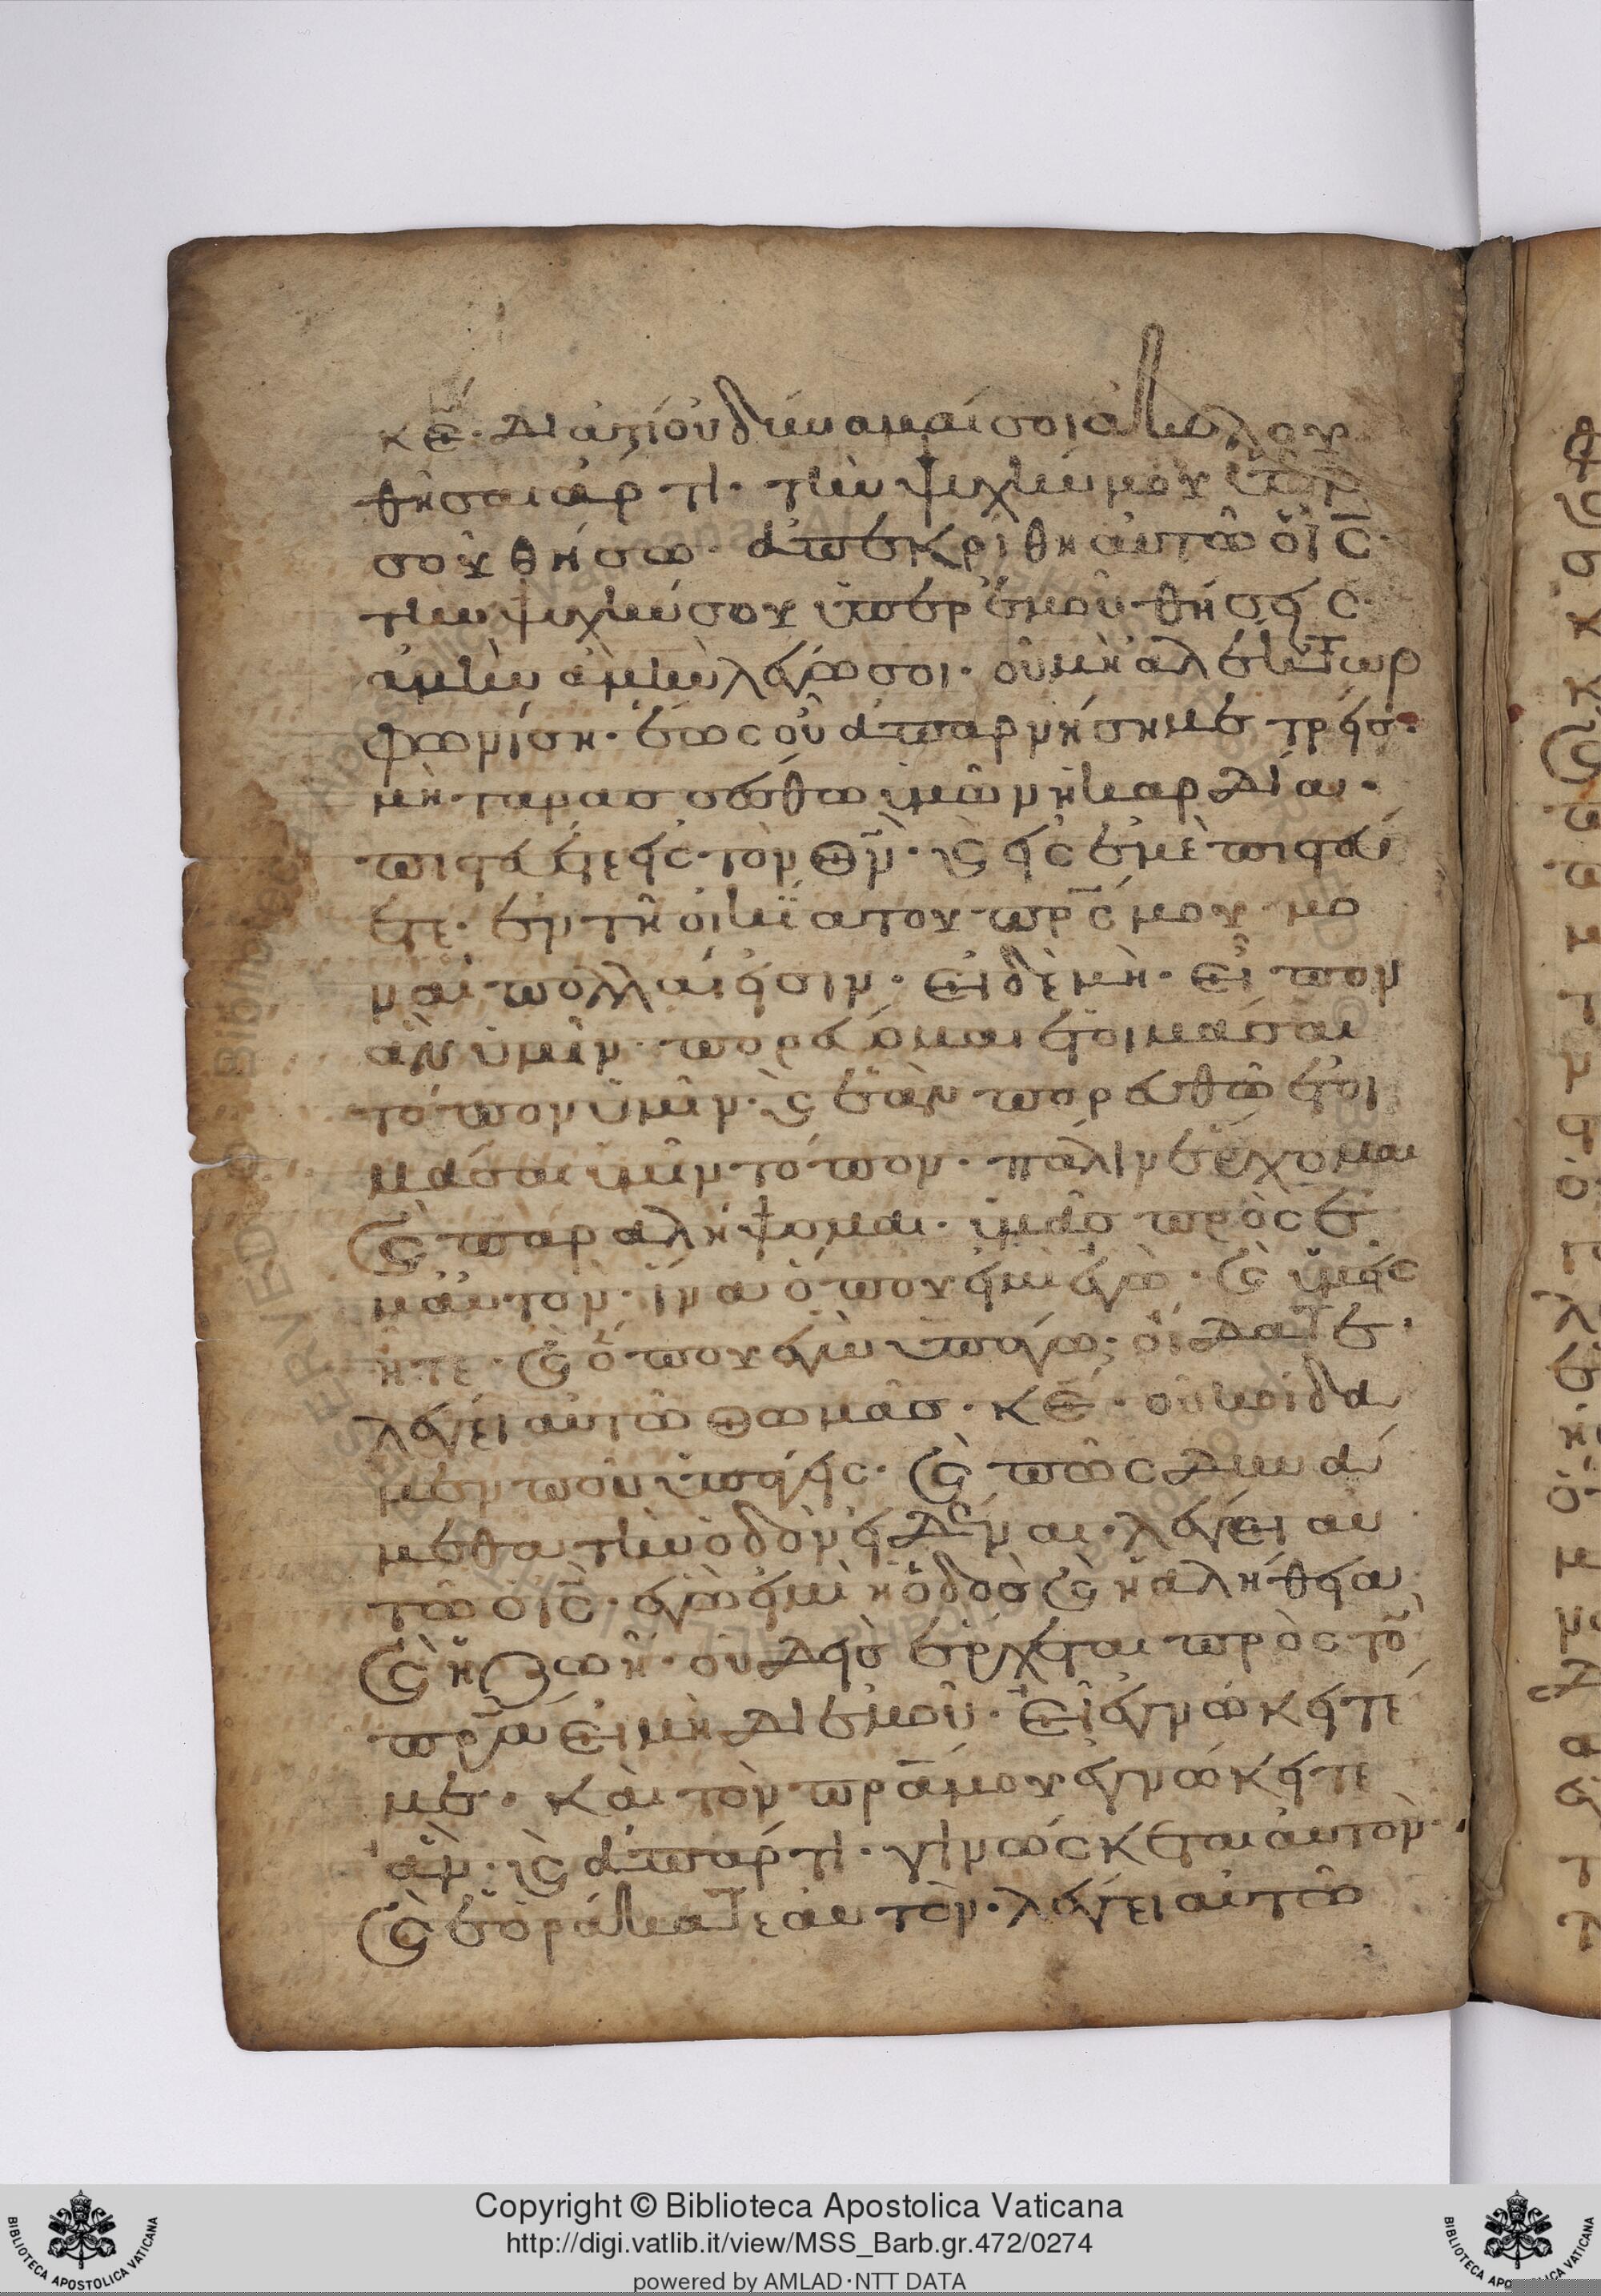 κε̅· διατί οὐ δύναμαί σοι ἀκολου
θῆσαι ἄρτι· τὴν ψυχήν μου ὑπὲρ
σοῦ θήσω· ἀπεκρίθη αὐτῶ ὁ ις̅·
τὴν ψυχήν σου ὑπὲρ ἐμοῦ θήσεις·
ἀμὴν ἀμὴν λέγω σοι· οὐ μὴ ἀλέκτωρ
φωνίση· ἕως οὗ ἀπαρνήσημε τρεῖσ·
μὴ ταρασσέσθω ὑμῶν ἡ καρδία·
πιστεύετε εἰς τὸν θν̅· κ(αὶ) εἰς ἐμὲ πιστεύ
ετε· ἐν τῆ οἰκία του πρς̅ μου μο
ναὶ πολλαί εἰσιν· εἰ δὲ μὴ· εἶπον
ἂν ὑμῖν· πορεύομαι ἑτοιμάσαι
τόπον ὑμῖν· κ(αὶ) ἐὰν πορευθῶ ἑτοι
μάσαι ὑμῖν τόπον· πάλιν ἔρχομαι
κ(αὶ) παραλήψομαι· ὑμᾶσ πρὸς ἐ
μαυτὸν· ἵνα ὅπου εἰμὶ ἐγὼ· κ(αὶ) ὑμεῖς
ἦτε· κ(αὶ) ὅπου ἐγὼ ὑπάγω· οἴδατε·
λέγει αὐτῶ θωμᾶσ· κε̅· οὐκ οίδα
μεν ποῦ ὑπάγεις· κ(αὶ) πῶς δυνά
μεθα τὴν ὁδὸν εἰδέναι· λέγει αυ
τῶ ὁ ις̅· ἐγὼ εἰμὶ ἡ ὁδὸσ κ(αὶ) ἡ ἀλήθεια
κ(αὶ) ἡ ζωῆ· οὐδεὶσ ἔρχεται πρὸς το̅
πρ̅α εἰ μὴ δι ἐμοῦ· Εἰ ἐγνώκειτέ
με· καὶ τὸν πρ̅α μου ἐγνώκειτε
ἂν· κ(αὶ) ἀπάρτι· γινώςκεται αὐτὸν·
κ(αὶ) ἑοράκατε αὐτὸν· λέγει αὐτῶ
Copyright © Biblioteca Apostolica Vaticana
http://digi.vatlib.it/view/MSS_Barb.gr.472/0274
powered by AMLAD·NTT DATA
BIBLIOTECA APOSTOLICA VATICANA